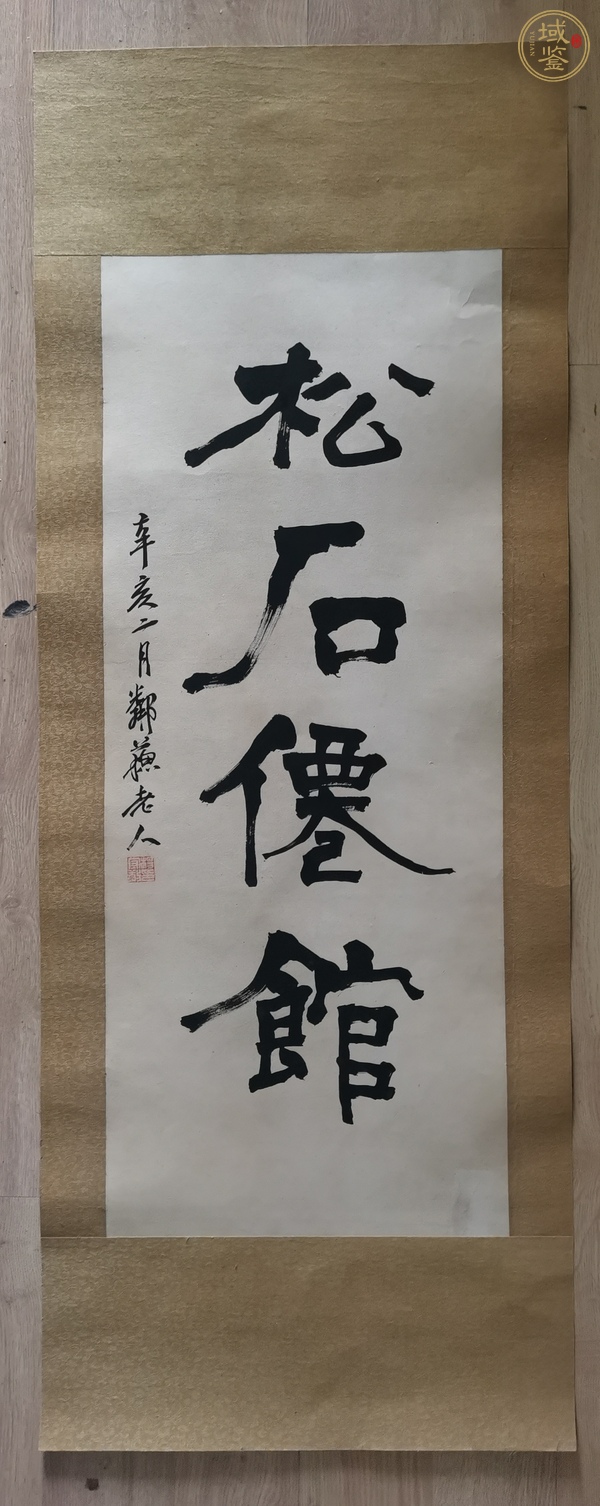 松石僊館
辛亥二月鄰蘇老人
域鉴
YUJIAN